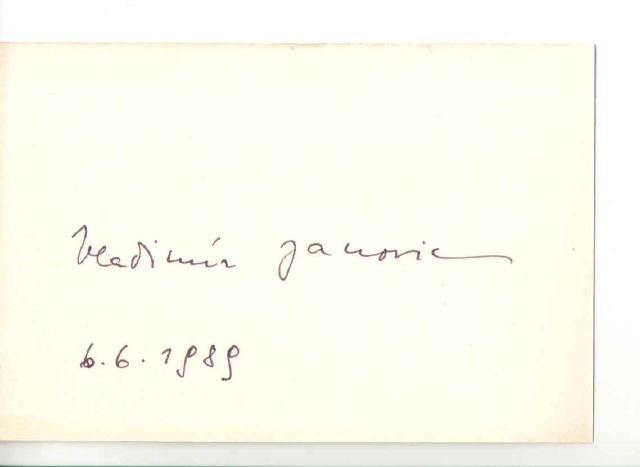 Vladimír Janovic
6.6.1989